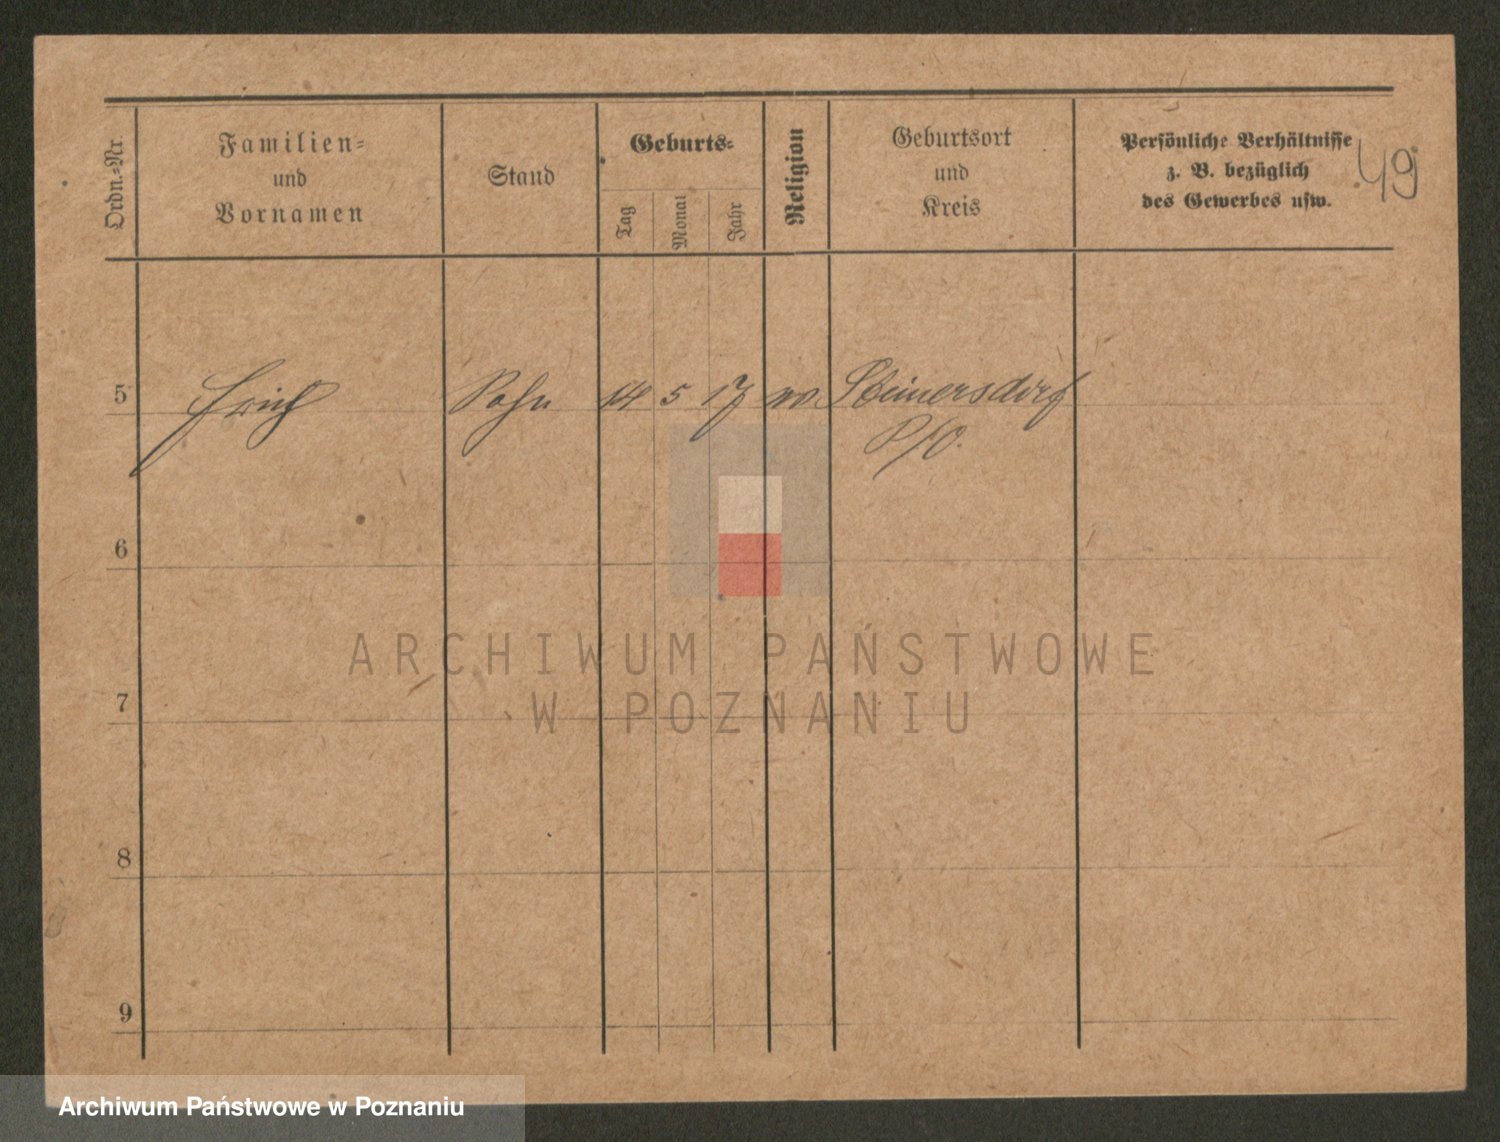 Ordn.-Nr.
Familien-
und
Vornamen
Stand
Geburts-
Tag
Monat
Jahr
Religion
Geburtsort
und
Kreis
Persönliche Verhältnisse
z. B. bezüglich
des Gewerbes usw.
49
5 Erich Sohn 14 5 17
6
7
8
9
ARCHIWUM PAŃSTWOWE
W POZNANIU
Archiwum Państwowe w Poznaniu